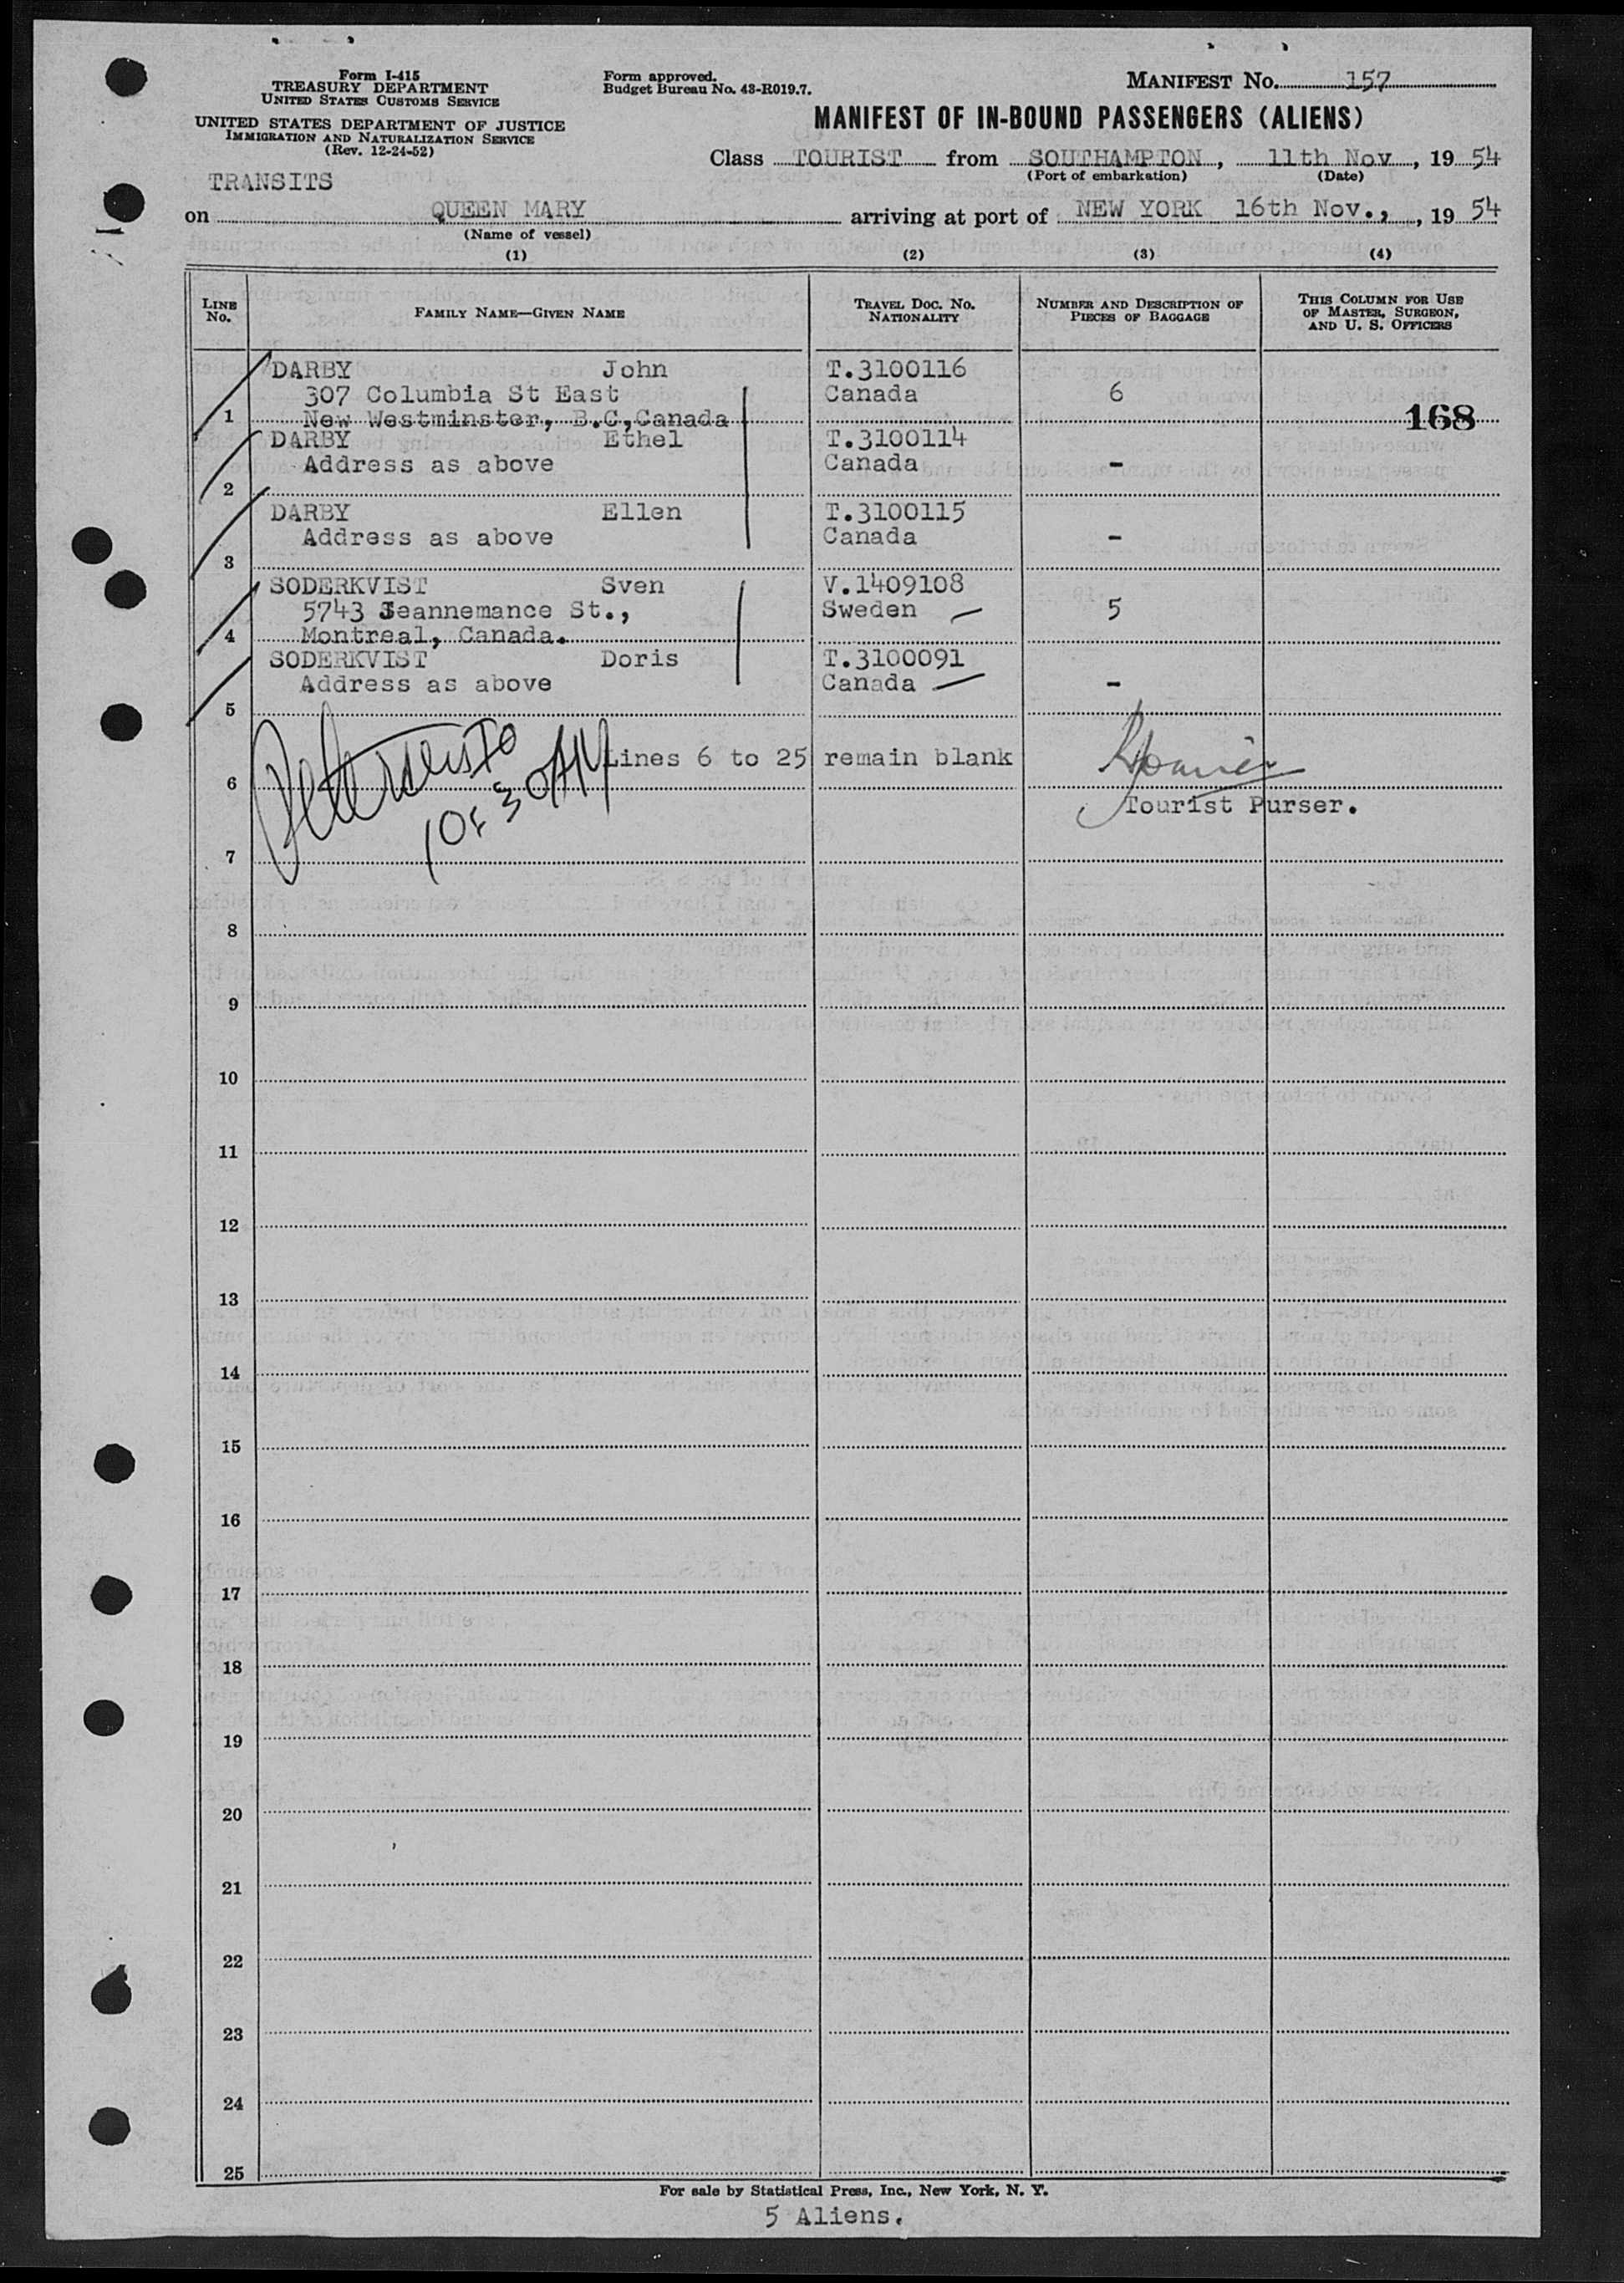 Form I-415
TREASURY DEPARTMENT
UNITED STATES CUSTOMS SERVICE
UNITED STATES DEPARTMENT OF JUSTICE
IMMIGRATION AND NATURALIZATION SERVICE
(Rev. 12-24-52)
Form approved.
Budget Bureau No. 43-R019.7.
MANIFEST No. 157
MANIFEST OF IN-BOUND PASSENGERS (ALIENS)
Class TOURIST from SOUTHAMPTON, 11th Nov, 19 54
(Port of embarkation) (Date)
TRANSITS
on QUEEN MARY arriving at port of NEW YORK 16th Nov., 19 54
(Name of vessel)
(1) (2) (3) (4)
LINE No. FAMILY NAME—GIVEN NAME TRAVEL DOC. No. NATIONALITY NUMBER AND DESCRIPTION OF PIECES OF BAGGAGE THIS COLUMN FOR USE OF MASTER, SURGEON, AND U. S. OFFICERS
DARBY John T.3100116
307 Columbia St East Canada 6
1 New Westminster, B.C,Canada 168
DARBY Ethel T.3100114
Address as above Canada -
2
DARBY Ellen T.3100115
Address as above Canada -
3
SODERKVIST Sven V.1409108
5743 Jeannemance St., Sweden 5
4 Montreal, Canada.
SODERKVIST Doris T.3100091
Address as above Canada -
5
Lines 6 to 25 remain blank
6
Tourist Purser.
7
8
9
10
11
12
13
14
15
16
17
18
19
20
21
22
23
24
25
For sale by Statistical Press, Inc., New York, N. Y.
5 Aliens.